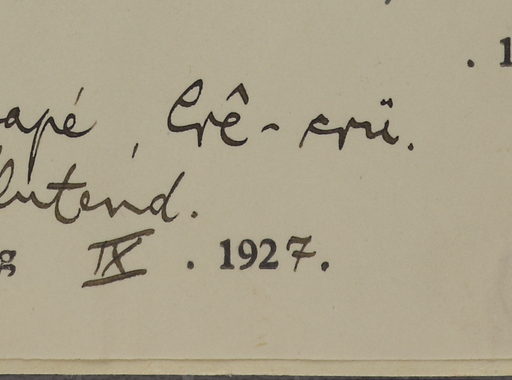 . 1
apé, Crê-crü.
lutend.
g IX . 1927.